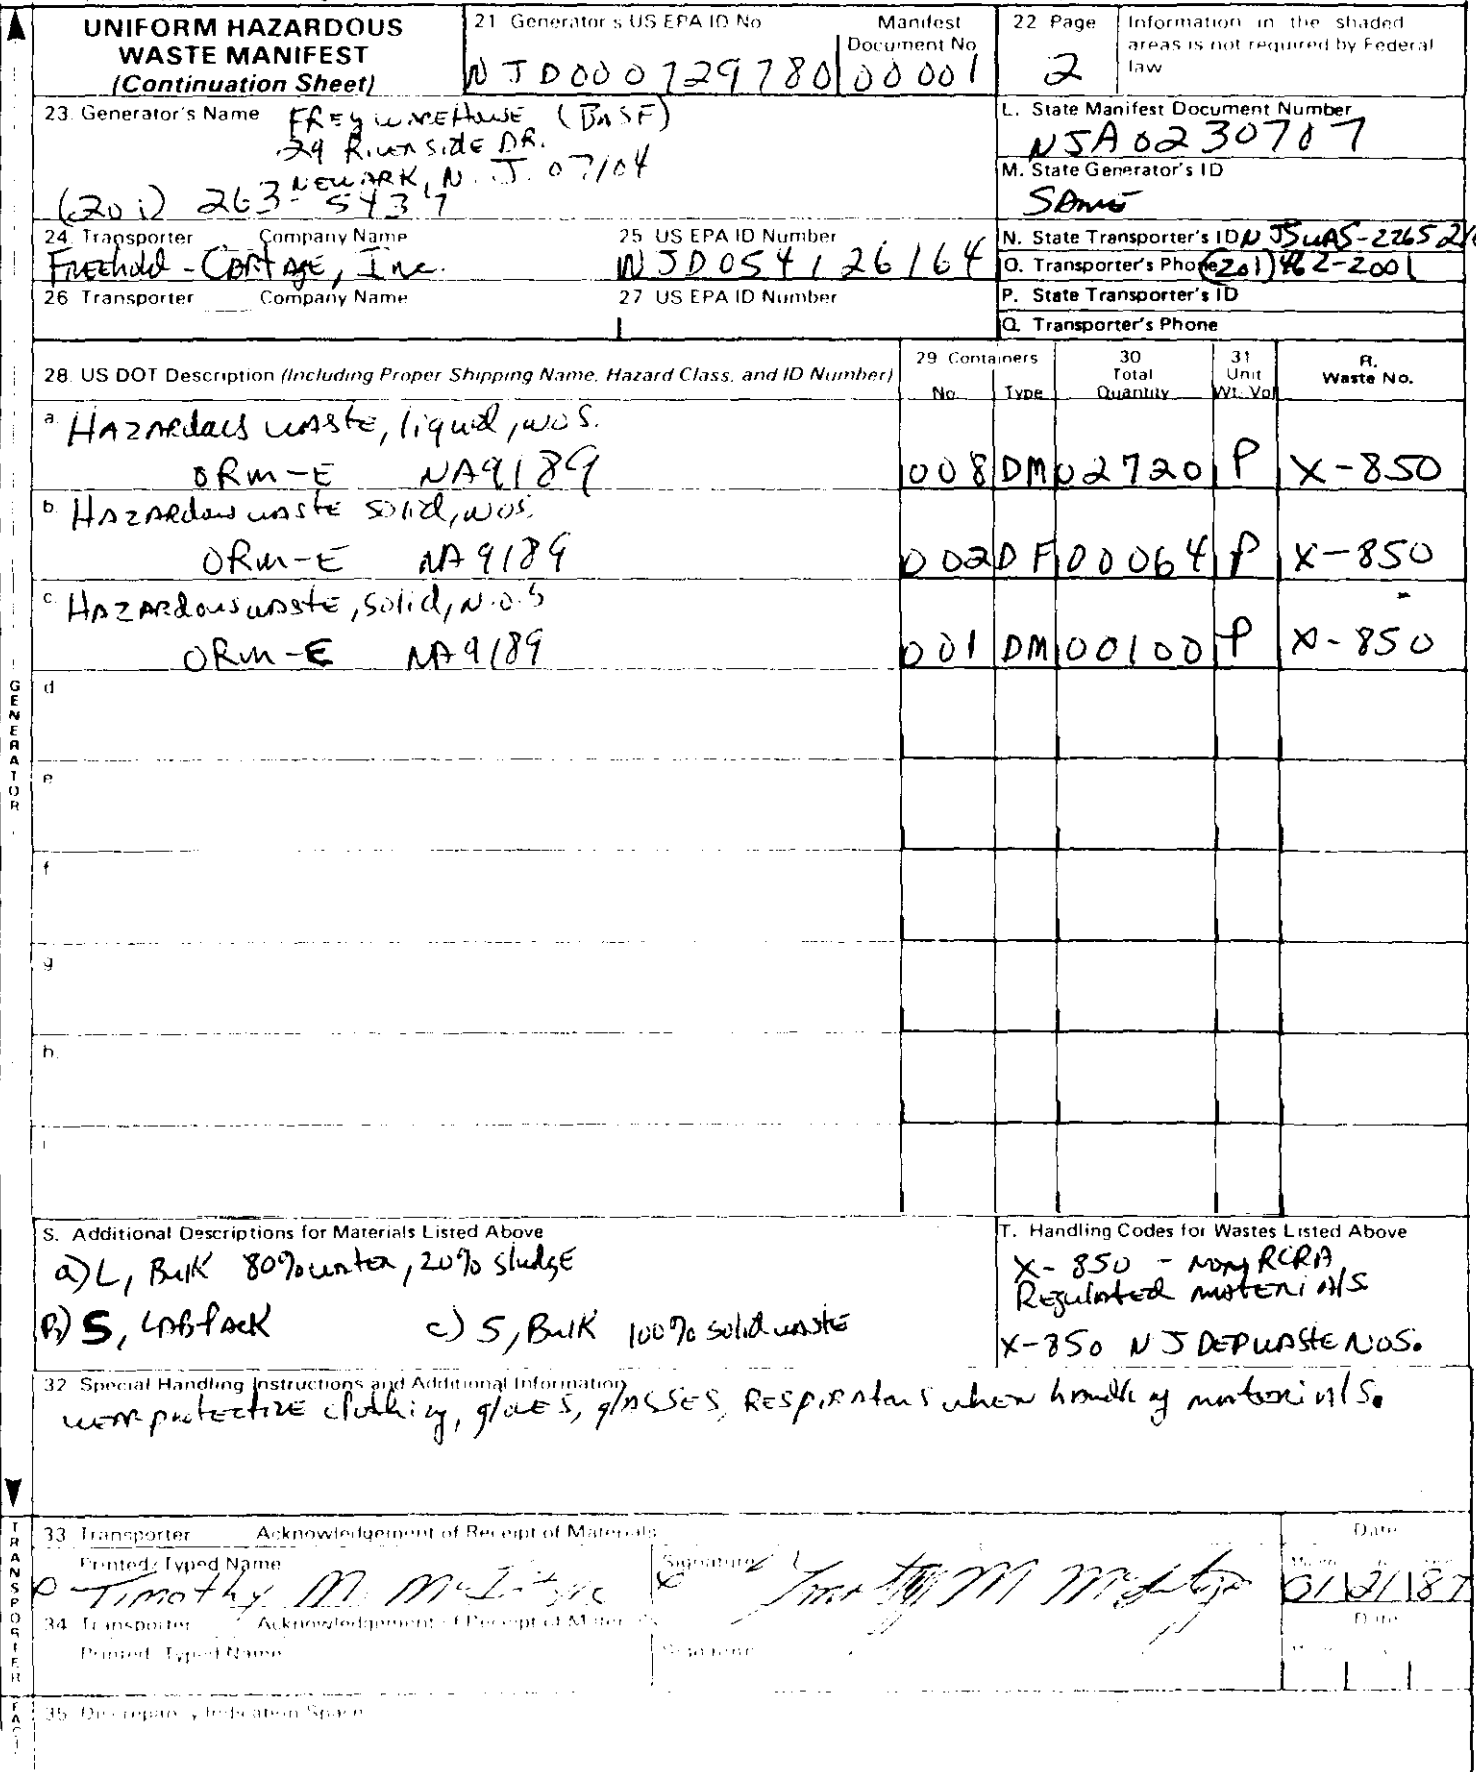 UNIFORM HAZARDOUS
WASTE MANIFEST
(Continuation Sheet)
21 Generator's US EPA ID No
Manifest
Document No
NJD000729780 00001
22 Page
2
Information in the shaded
areas is not required by Federal
law
23. Generator's Name FREY WAREHOUSE (BASF)
29 Riverside DR.
NEWARK, N.J. 07104
(201) 263-5437
L. State Manifest Document Number
NJA0230707
M. State Generator's ID
SAME
24. Transporter Company Name
Freehold-CARTAGE, Inc.
25 US EPA ID Number
NJD054126164
N. State Transporter's ID
O. Transporter's Phone (201) 462-2001
26 Transporter Company Name
27 US EPA ID Number
P. State Transporter's ID
Q. Transporter's Phone
28. US DOT Description (Including Proper Shipping Name, Hazard Class, and ID Number)
29 Containers
No. Type
30
Total
Quantity
31
Unit
Wt. Vol
R.
Waste No.
a. HAZARdous WASTE, liquid, NOS.
ORM-E NA9189 008 DM 02720 P X-850
b. HAZARdous WASTE solid, NOS.
ORM-E NA9189 002 DF 00064 P X-850
c. HAZARdous WASTE, solid, N.O.S
ORM-E NA9189 001 DM 00100 P X-850
d
e
f
g
h.
i
GENERATOR
S. Additional Descriptions for Materials Listed Above
a) L, Bulk 80% water, 20% sludge
B) S, LABPACK c) S, Bulk 100% solid waste
T. Handling Codes for Wastes Listed Above
X-850 - NON RCRA
Regulated MATERIALS
X-850 NJ DEP WASTE NOS.
32 Special Handling Instructions and Additional Information
WEAR PROTECTIVE clothing, gloves, glasses, RESPIRATORS when handling materials.
33 Transporter Acknowledgement of Receipt of Materials
Printed/Typed Name
Timothy M. McIntyre
Signature
Timothy M McIntyre
Date
01 21 87
34 Transporter Acknowledgement of Receipt of Materials
Printed/Typed Name
Signature
Date
TRANSPORTER
35 Discrepancy Indication Space